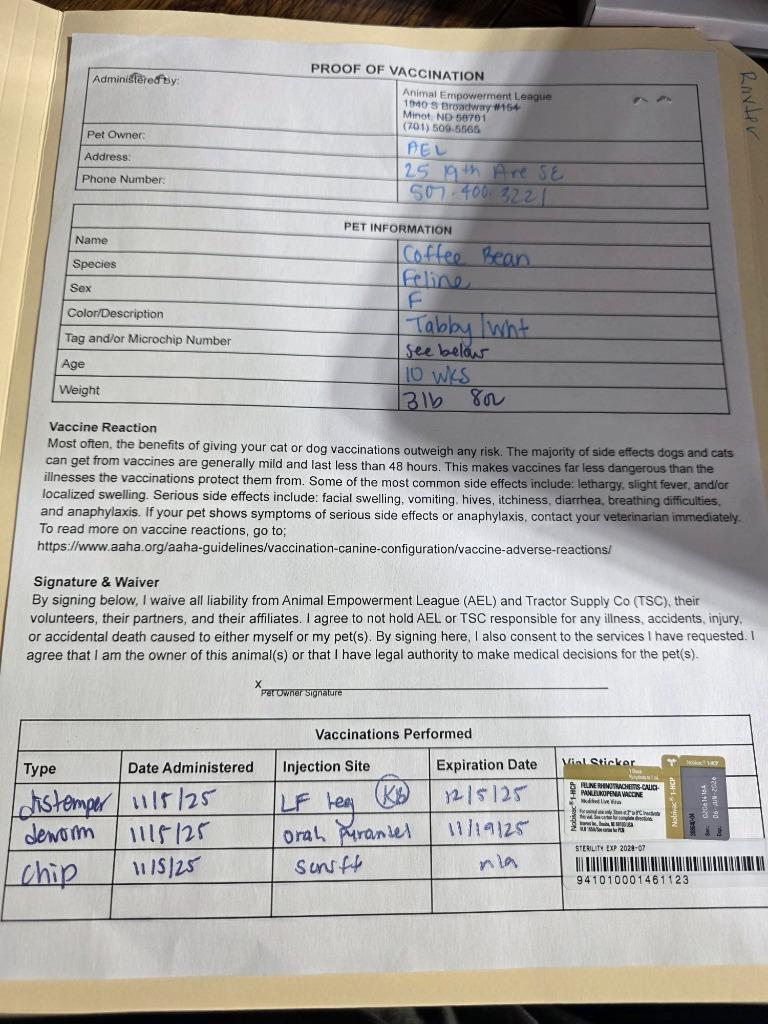 PROOF OF VACCINATION
Administered By:
Animal Empowerment League
1940 S Broadway #154
Minot, ND 58701
(701) 509-5565
Pet Owner: AEL
Address: 25 19th Ave SE
Phone Number: 507-400-3221
PET INFORMATION
Name Coffee Bean
Species Feline
Sex F
Color/Description Tabby/wht
Tag and/or Microchip Number see below
Age 10 wks
Weight 3lb 8oz
Vaccine Reaction
Most often, the benefits of giving your cat or dog vaccinations outweigh any risk. The majority of side effects dogs and cats
can get from vaccines are generally mild and last less than 48 hours. This makes vaccines far less dangerous than the
illnesses the vaccinations protect them from. Some of the most common side effects include: lethargy, slight fever, and/or
localized swelling. Serious side effects include: facial swelling, vomiting, hives, itchiness, diarrhea, breathing difficulties,
and anaphylaxis. If your pet shows symptoms of serious side effects or anaphylaxis, contact your veterinarian immediately.
To read more on vaccine reactions, go to;
https://www.aaha.org/aaha-guidelines/vaccination-canine-configuration/vaccine-adverse-reactions/
Signature & Waiver
By signing below, I waive all liability from Animal Empowerment League (AEL) and Tractor Supply Co (TSC), their
volunteers, their partners, and their affiliates. I agree to not hold AEL or TSC responsible for any illness, accidents, injury,
or accidental death caused to either myself or my pet(s). By signing here, I also consent to the services I have requested. I
agree that I am the owner of this animal(s) or that I have legal authority to make medical decisions for the pet(s).
X
Pet Owner Signature
Vaccinations Performed
Type Date Administered Injection Site Expiration Date Vial Sticker
distemper 11/5/25 LF leg KB 12/5/25
deworm 11/5/25 oral pyrantel 11/19/25
chip 11/5/25 scruff n/a
Nobivac® 1-HCP
FELINE RHINOTRACHEITIS-CALICI-
PANLEUKOPENIA VACCINE
Modified Live Virus
Nobivac® 1-HCP
Nobivac® 1-HCP
06 JUN 2026
STERILITY EXP 2028-07
941010001461123